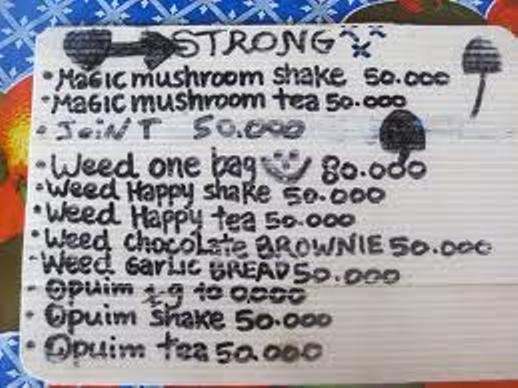 STRONG
• MAGIC mushroom shake 50.000
• MAGIC mushroom tea 50.000
• JOINT 50.000
• Weed one bag 80.000
• Weed Happy shake 50.000
• Weed Happy tea 50.000
• Weed chocolate BROWNIE 50.000
• Weed Garlic BREAD 50.000
• Opuim 1g 10 0,000
• Opuim shake 50.000
• Opuim tea 50.000